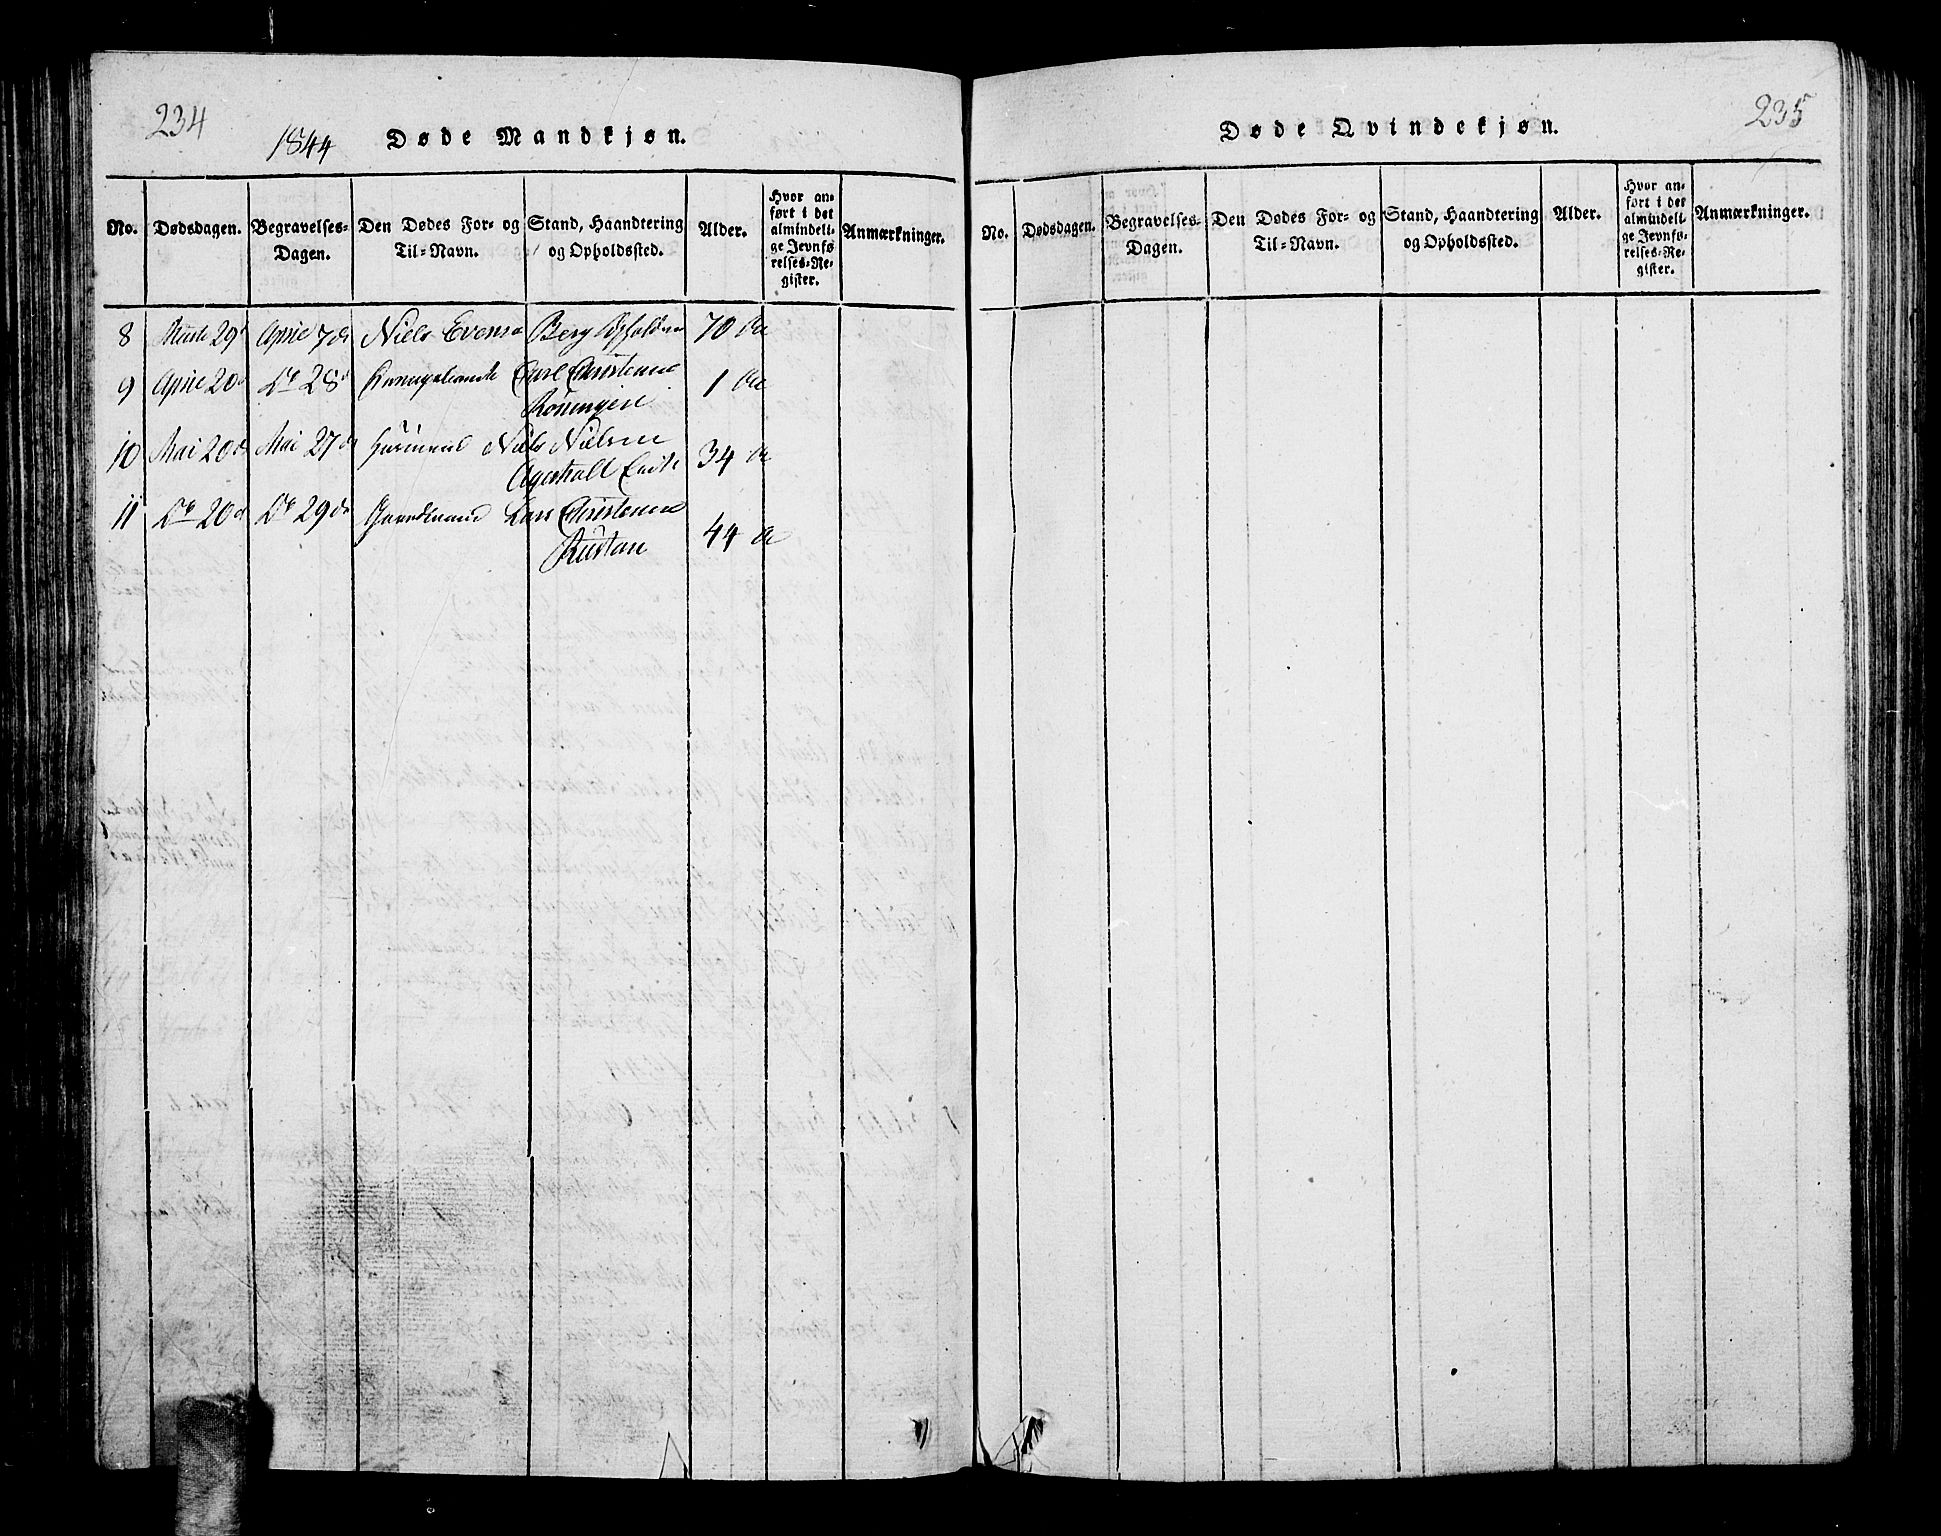 234
1844 Døde Mandkjøn.
No. Dødsdagen. Begravelses-Dagen. Den Dødes For- og Til-Navn. Stand, Haandtering og Opholdssted. Alder. Hvor anført i det almindelige Jevnførelses-Register. Anmærkninger.
8 29 April 7de Niels Evens Berg 70 Aar
9 April 20de Do 28de Christensen 1 Aar
10 Mai 20de Mai 27de Huusmand Niels Nielsen
34 Aar
11 Do 20de Do 29de Gaardmand Lars Christensen
Rustan 44 Aar
235
Døde Qvindekjøn.
No. Dødsdagen. Begravelses-Dagen. Den Dødes For- og Til-Navn. Stand, Haandtering og Opholdssted. Alder. Hvor anført i det almindelige Jevnførelses-Register. Anmærkninger.